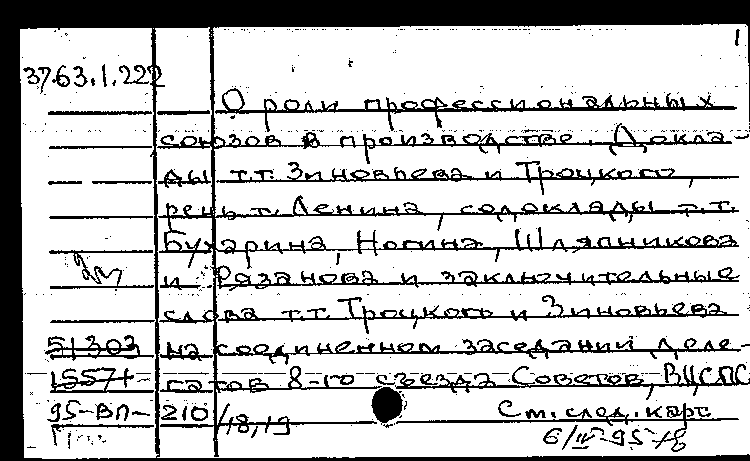 1
37.63.1.222
О роли профессиональных
союзов в производстве. Докла-
ды т.т. Зиновьева и Троцкого,
речь т. Ленина, содоклады т.т.
Бухарина, Ногина, Шляпникова
и Рязанова и заключительные
слова т.т. Троцкого и Зиновьева
51303 на соединенном заседании деле-
1557+ гатов 8-го съезда Советов, ВЦСПС
95-ВП- 210/18,19 См. след. карт.
6/IV-95